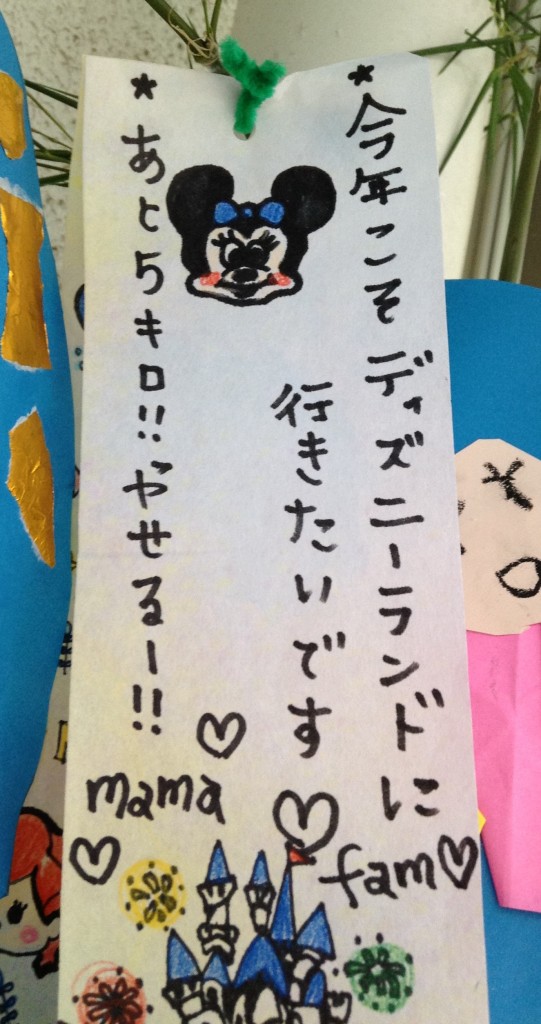 *今年こそディズニーランドに
行きたいです
*あと5キロ!!やせるー!!
mama
fam